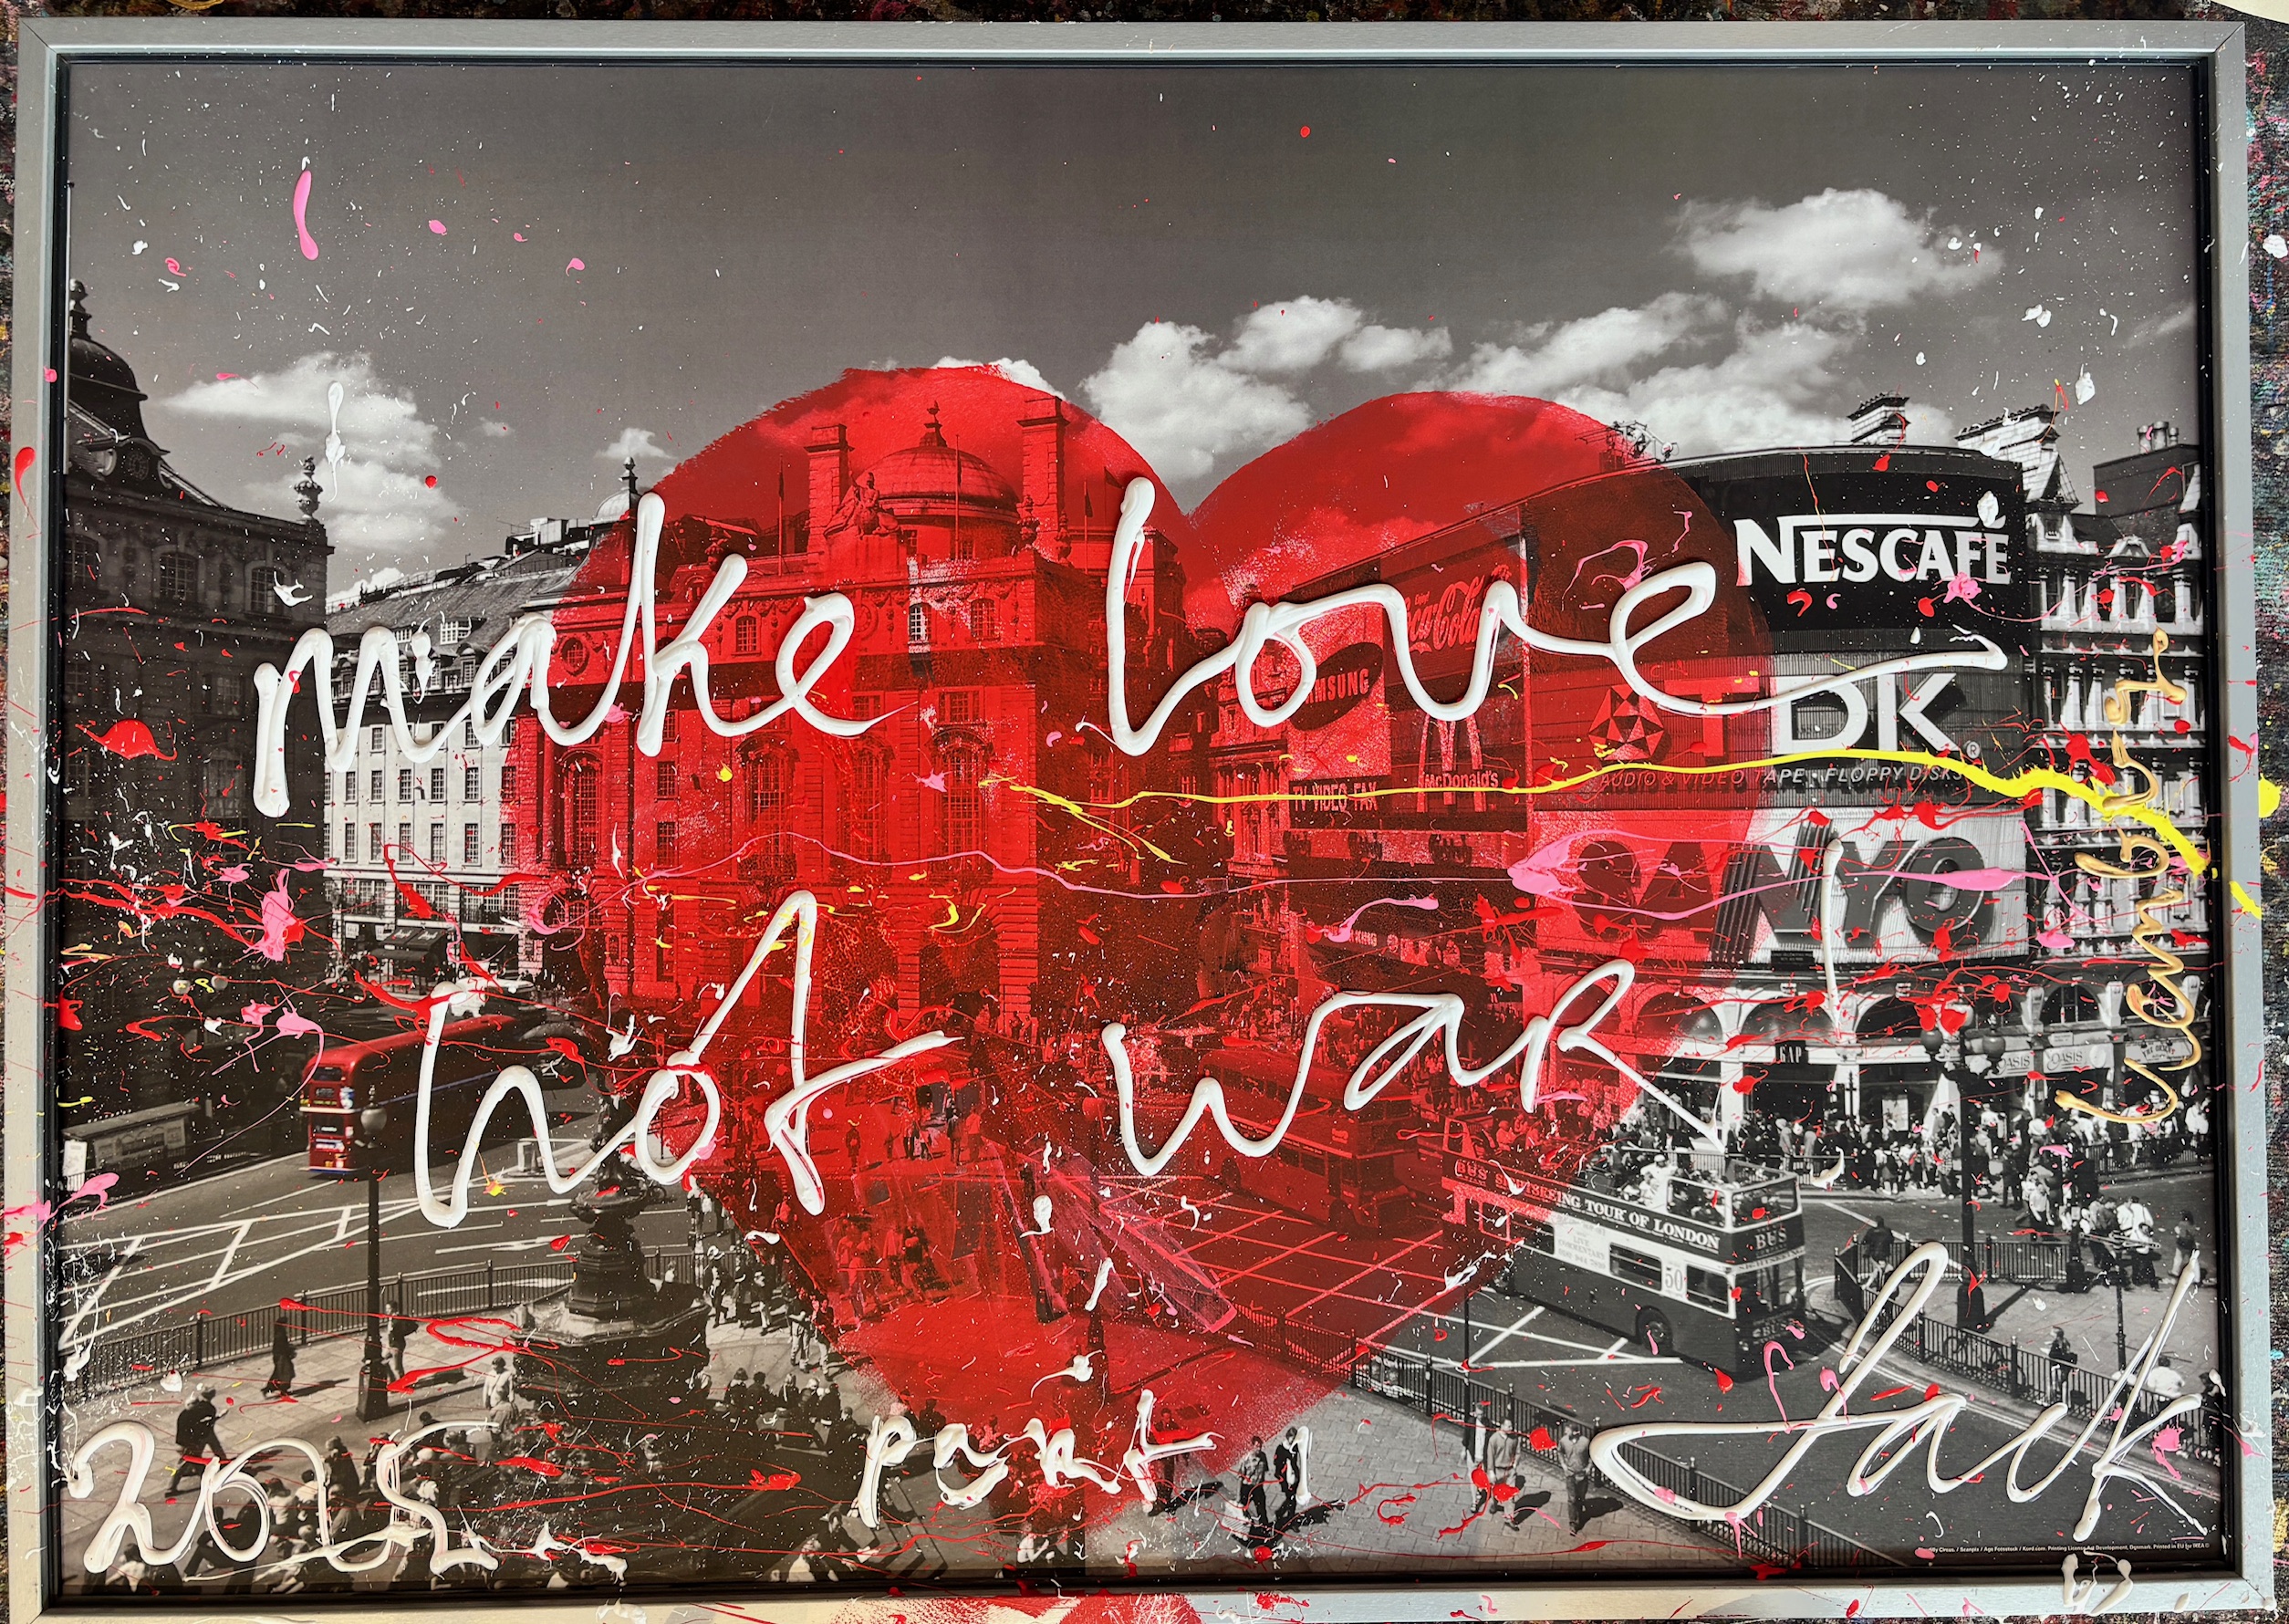 NESCAFÉ
make love
Coca-Cola
TDK
McDonald's
AUDIO & VIDEO TAPE · FLOPPY DISKS
TV VIDEO FAX
SANYO
not war!
GAP
OASIS
OASIS
BUS SIGHTSEEING TOUR OF LONDON
BUS
LIVE
COMMENTARY
50
part 1
Jack